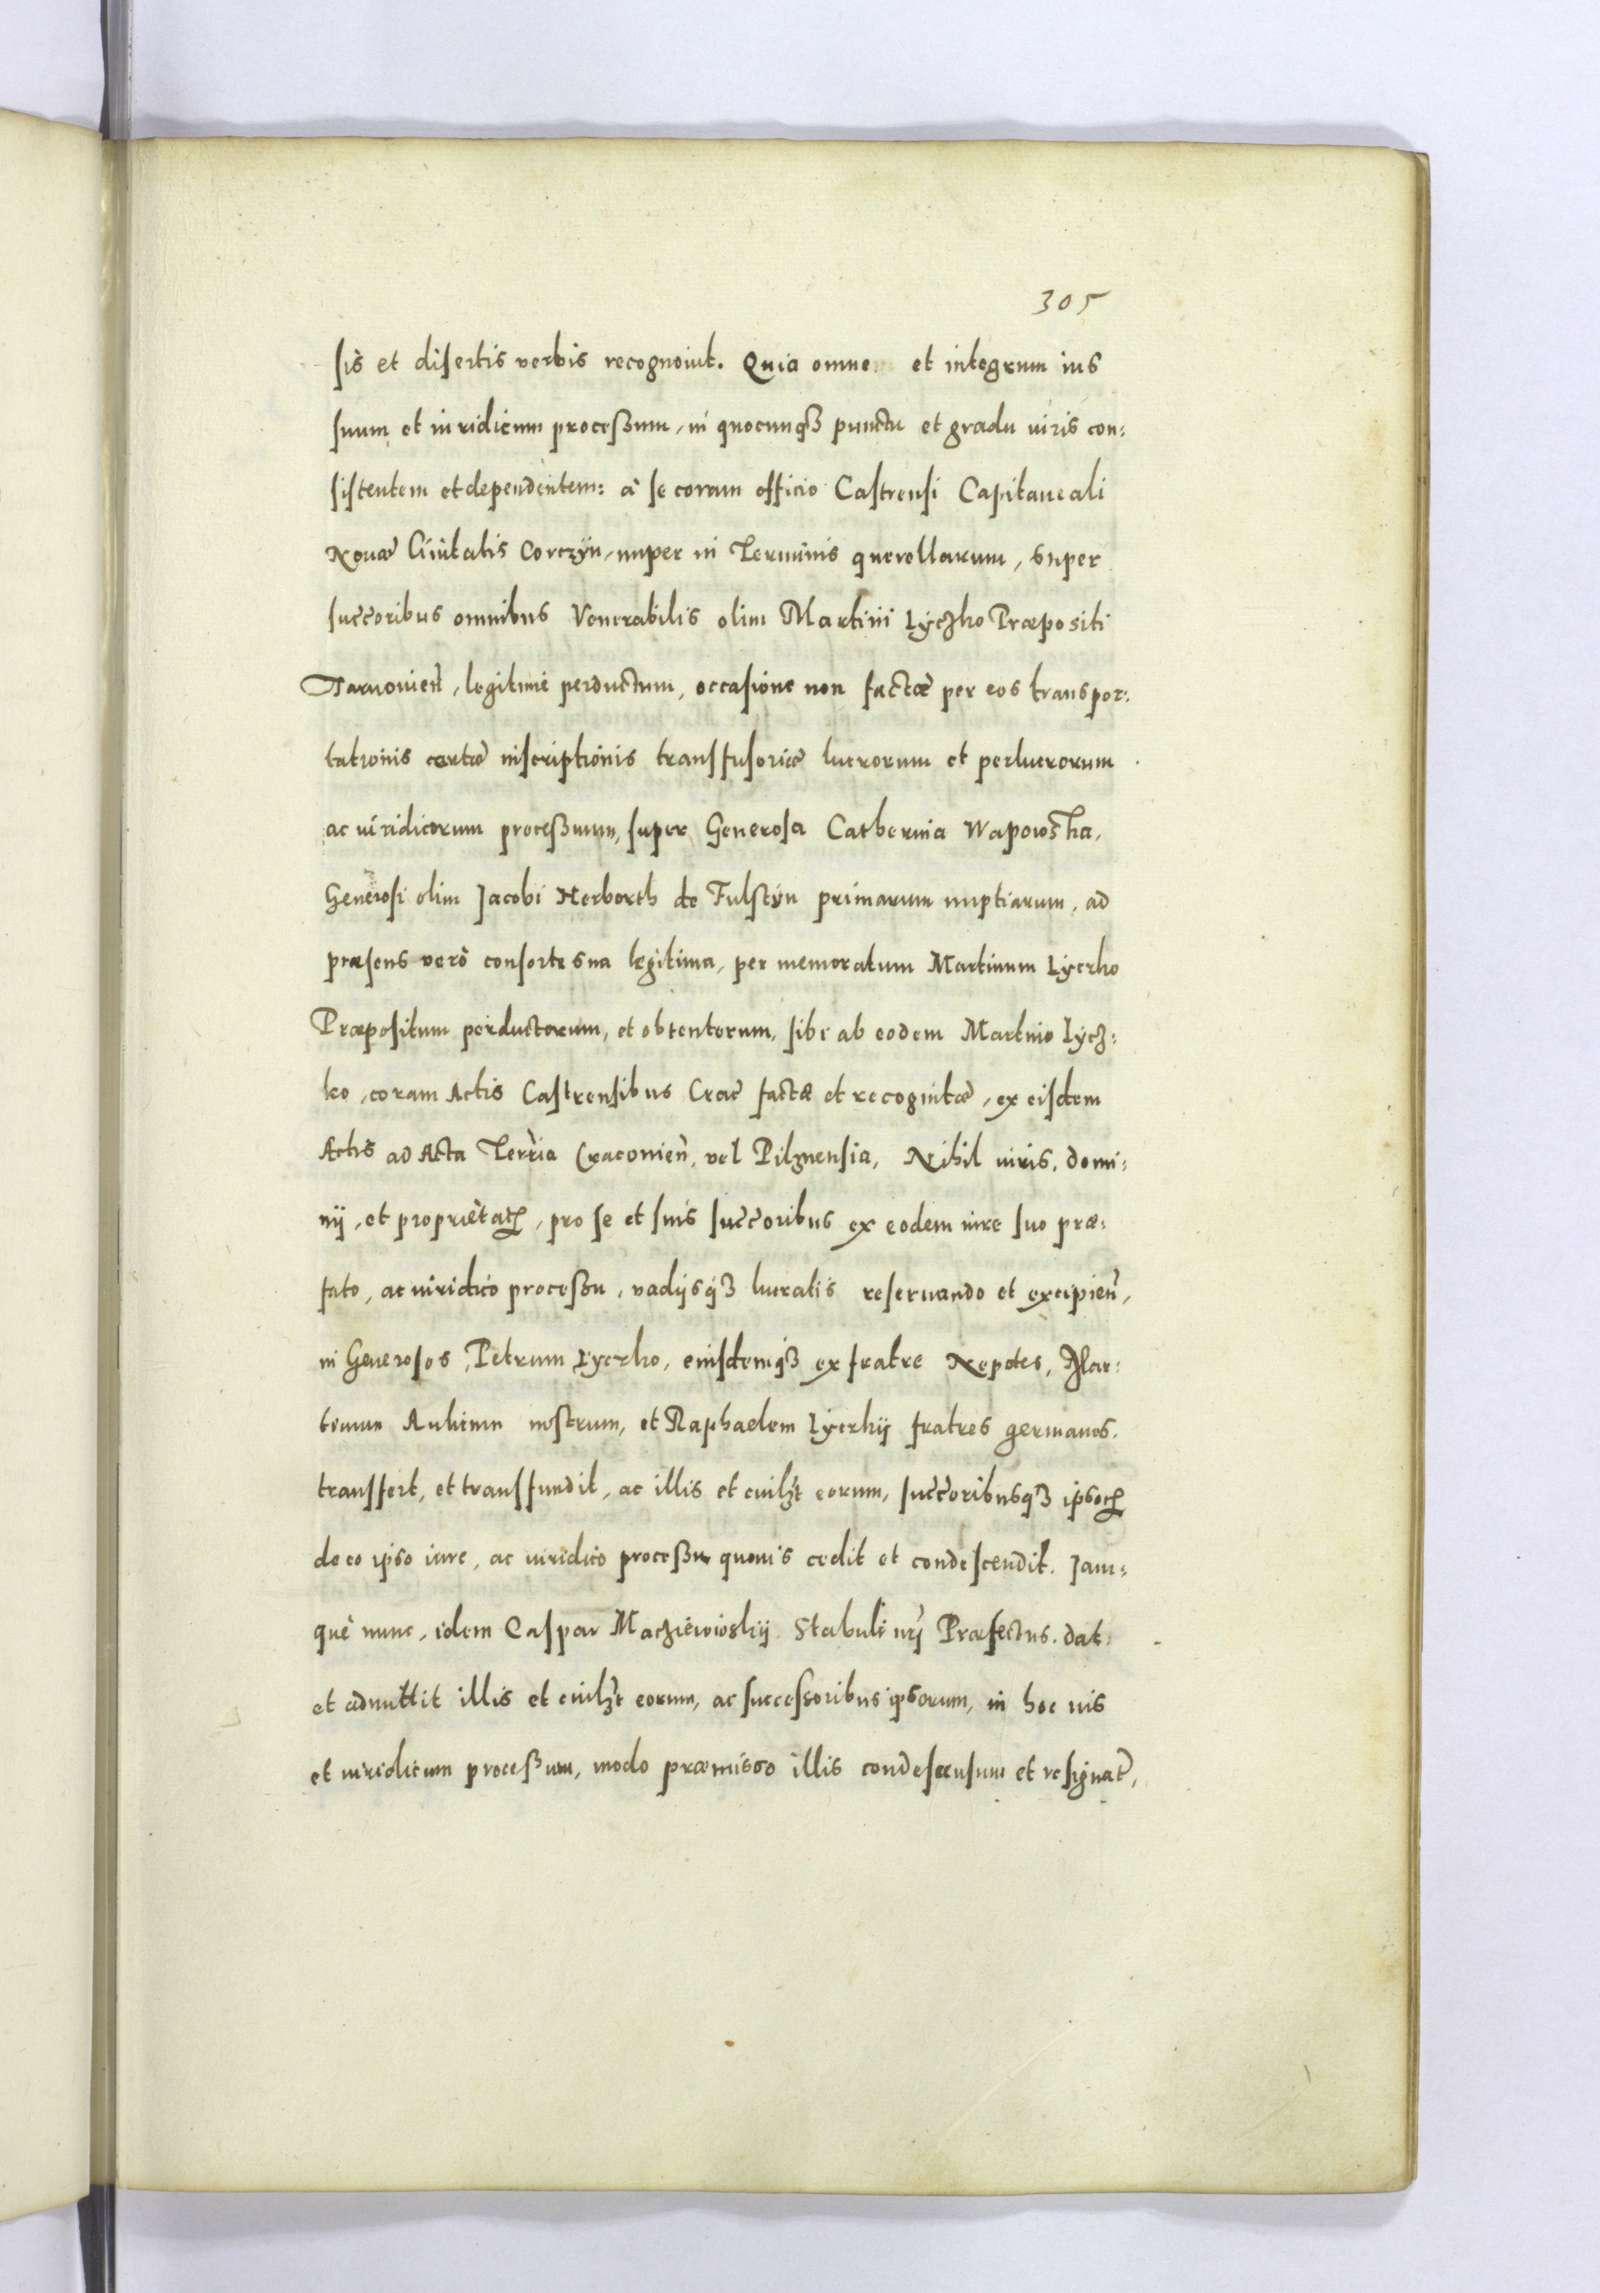 305
sis et disertis verbis recognovit. Quia omne et integrum ius
suum et iuridicum processum, in quocunqȝ punctu et gradu iuris con:
sistentem et dependentem: à se coram officio Castrensi Capitaneali
Novae Civitatis Corczÿn, nuper in Terminis querellarum, super
succoribus omnibus Venerabilis olim Martini Lÿczko Præpositi
Tarnovien̄, legitime perductum, occasione non factæ per eos transpor:
tationis certæ inscriptionis transfusoriæ lucrorum et perlucrorum
ac iuridicorum processuum, super Generosa Catherina Wapowska,
Generosi olim Jacobi Herborth de Fulstÿn primarum nuptiarum, ad
præsens verò consorte sua legitima, per memoratum Martinum Lÿczko
Præpositum perductorum, et obtentorum, sibi ab eodem Martino Lÿcz:
ko, coram Actis Castrensibus Crac̄ factæ et recognitæ, ex eisdem
Actis ad Acta Terrīa Cracovien̄, vel Pilznensia, Nihil iuris, domi:
nij, et proprietatꝭ, pro se et suis succoribus ex eodem iure suo præ:
fato, ac iuridico processu, vadijsqȝ lucratis reservando et excipien̄,
in Generosos, Petrum Lyczko, eiusdemqȝ ex fratre Nepotes, Mar:
tinum Aulicum nostrum, et Raphaelem Lÿczkij fratres germanos,
transfert, et transfundit, ac illis et cuilȝt eorum, succoribusqȝ ipsoꝝ
de eo ipso iure, ac iuridico processu quovis cedit et condescendit. Jam:
què nunc, idem Caspar Maczieiowskij Stabuli nr̄i Præfectus, dat
et admittit illis et cuilȝt eorum, ac successoribus ipsorum, in hoc ius
et iuridicum processum, modo præmisso illis condescensum et resignat̄,